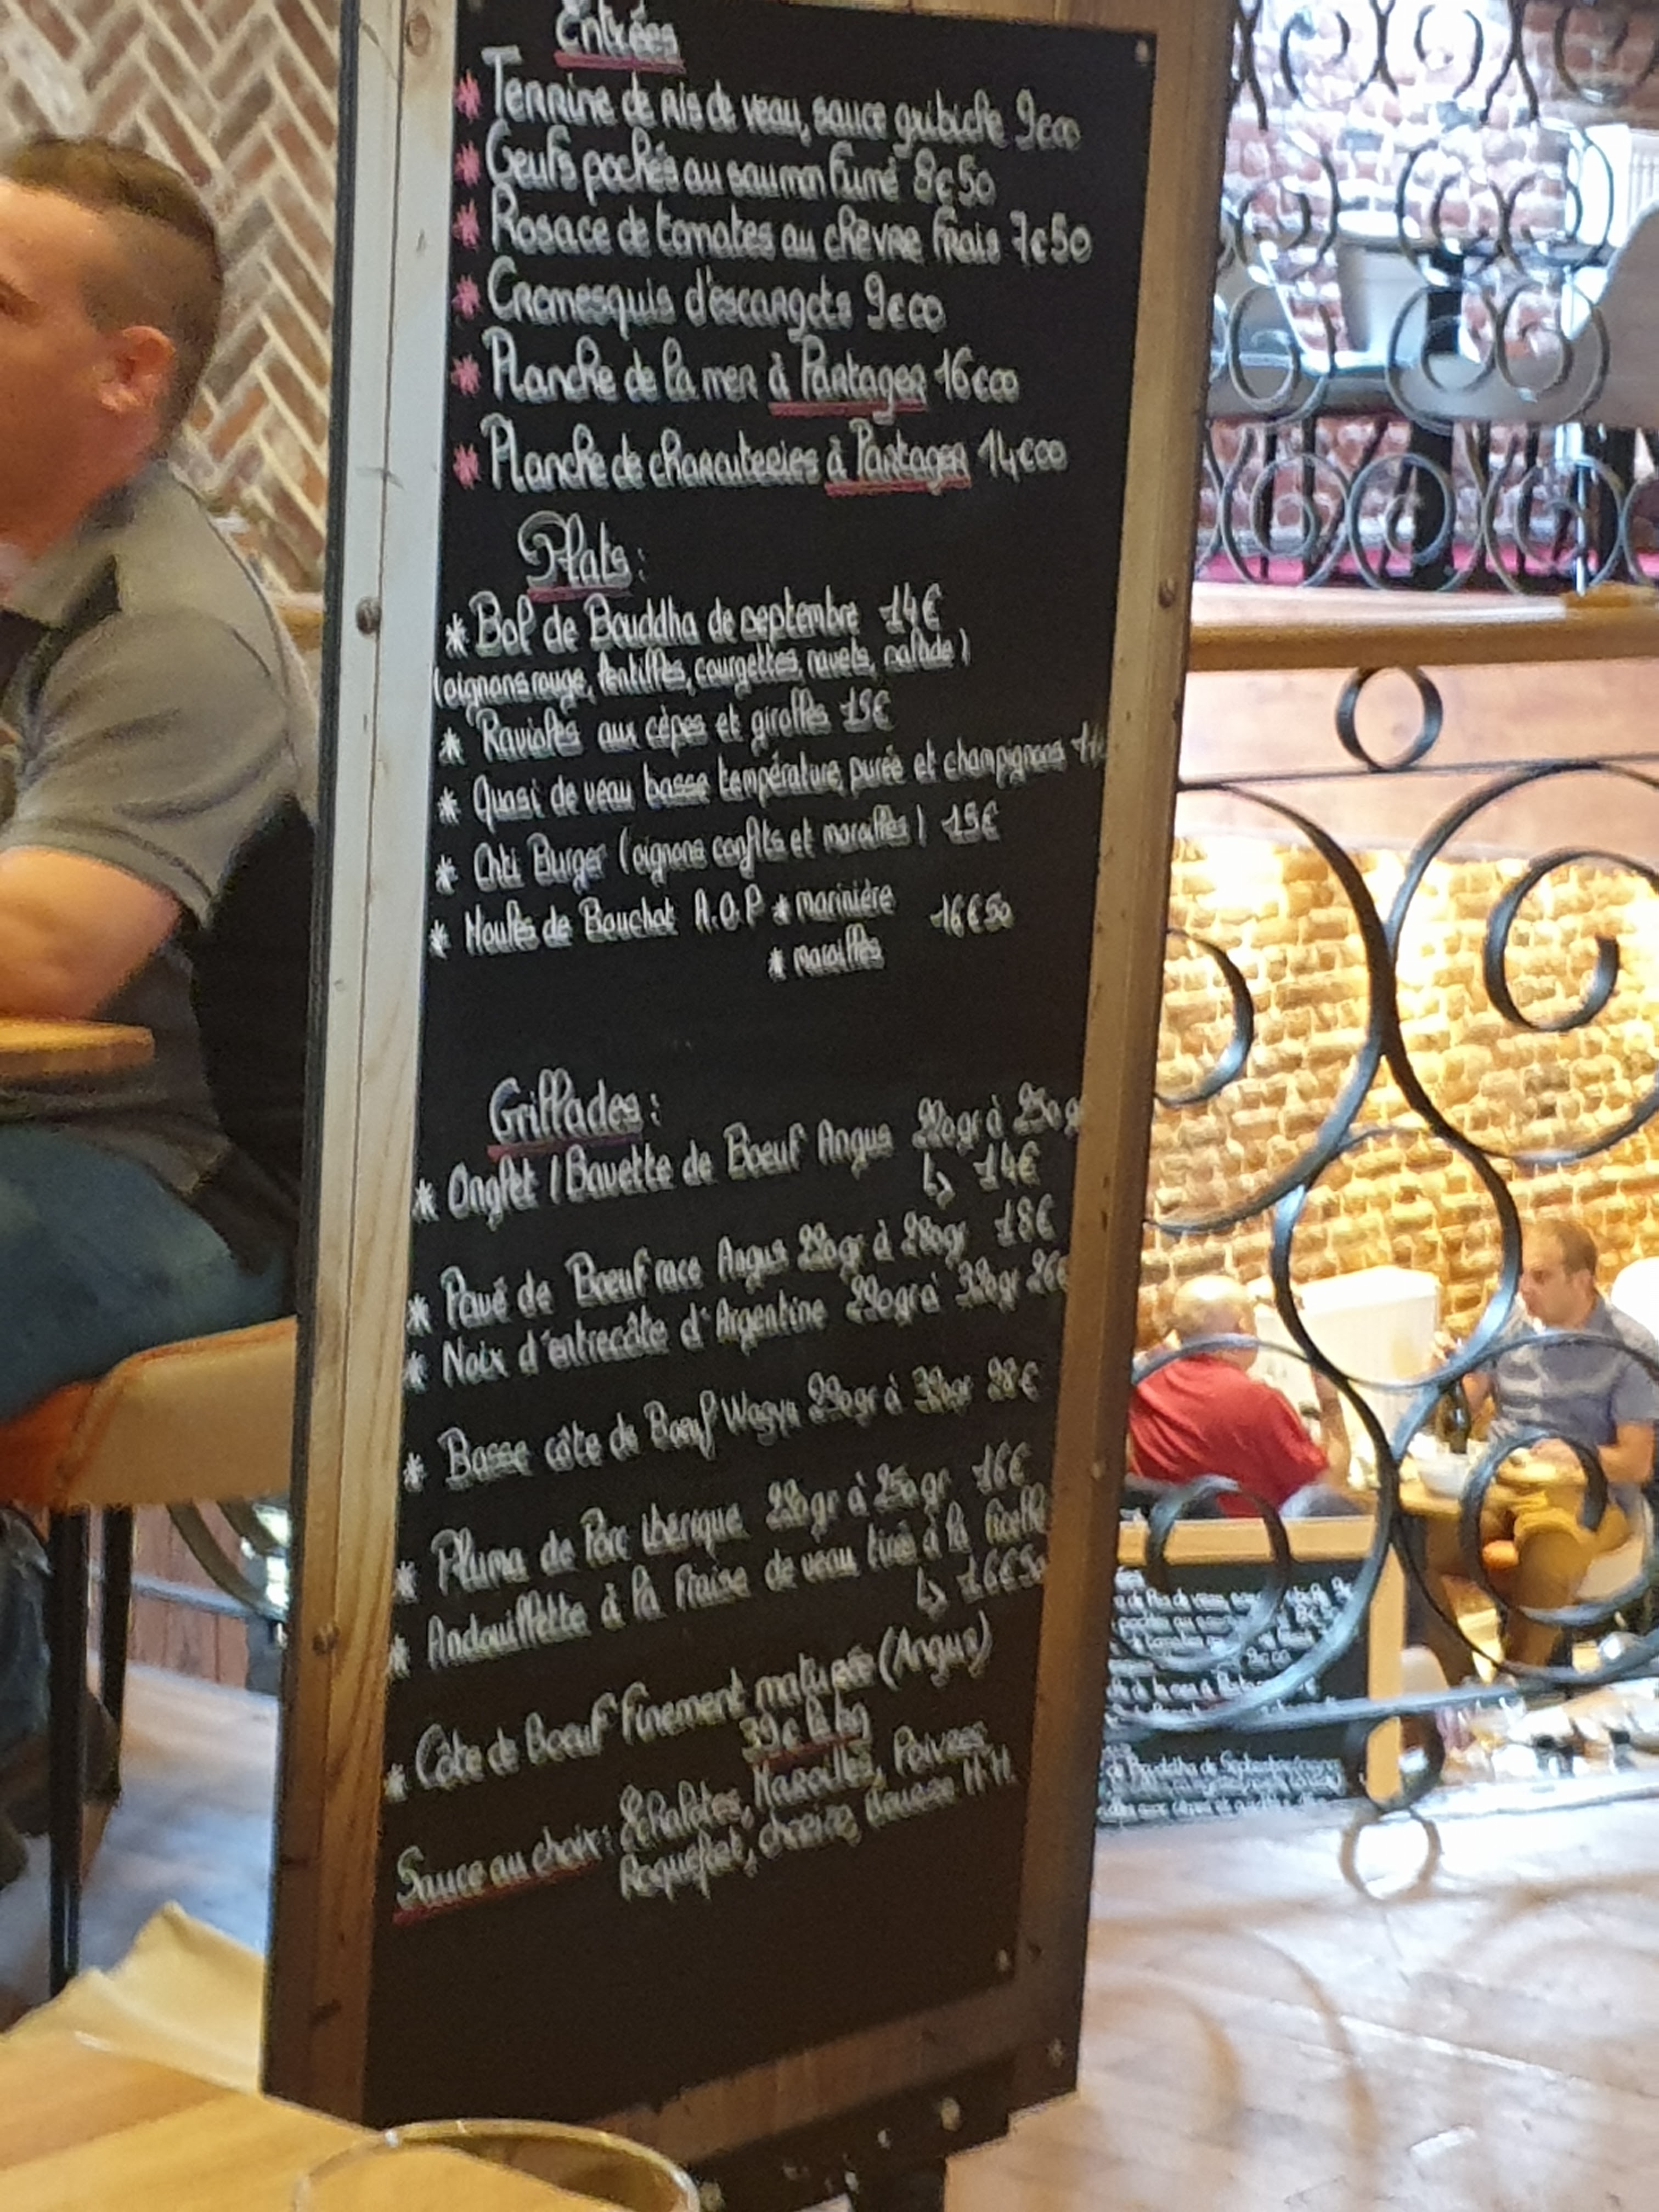 Entrées
* Terrine de Ris de veau, sauce gribiche 9€00
* Oeufs pochés au saumon fumé 8€50
* Rosace de tomates au chèvre frais 7€50
* Cromesquis d'escargots 9€00
* Planche de la mer à Partager 16€00
* Planche de charcuteries à Partager 14€00
Plats :
* Bol de Bouddha de septembre 14€
(oignons rouge, lentilles, courgettes, navets, salade)
* Ravioles aux cèpes et girolles 15€
* Quasi de veau basse température, purée et champignons
* Chti Burger (oignons confits et maroilles) 15€
* Moules de Bouchot A.O.P * marinière 16€50
* maroilles
Grillades :
* Onglet / Bavette de Boeuf Angus 220gr à 250gr
↳ 14€
* Pavé de Boeuf race Angus 220gr à 280gr 18€
* Noix d'entrecôte d'Argentine 290gr à 320gr 26€
* Basse côte de Boeuf Wagyu 28€
* Pluma de Porc ibérique à 250gr 16€
* Andouillette à la fraise de veau tiré à la ficelle
↳ 16€50
* Côte de Boeuf finement maturée (Angus)
39€ le kg
Sauce au choix : Échalotes, Maroilles, Poivres
Roquefort, chorizo,